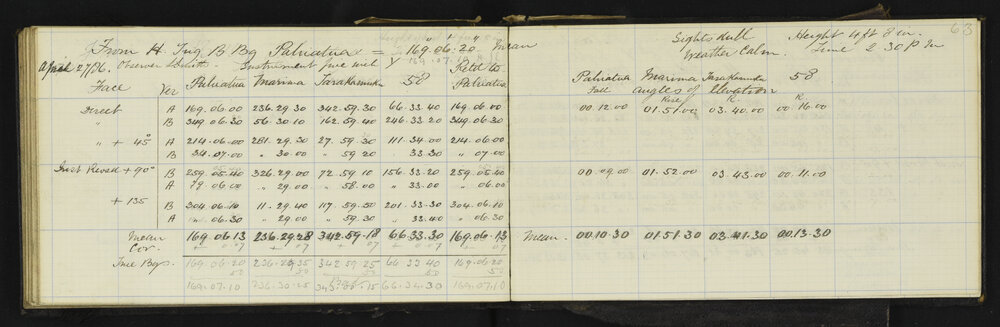 63
From H. Trig B Bg Paluatua = 169.06.20. mean
Sights Full Height 4 ft 8 in.
Weather Calm. Time 2 30 P.M
April 27/06. Observer Instrument
Face Ver Paluatua Marima Tarakamuka 58 Retd to Paluatua
Paluatua Marima Tarakamuka 58
Fall angles of Elevation
Rise R. R
Direct A 169.06.00 236.29.30 342.59.30 66.33.40 169.06.00 00.12.00 01.51.00 03.40.00 00.16.00
" B 349.06.30 56.30.10 162.59.40 246.33.20 349.06.30
" + 45° A 214.06.00 281.29.30 27.59.30 111.34.00 214.06.00
B 34.07.00 " 30.00 " 59 20 " 33.30 " 07.00
Inst Revsd + 90° B 259.05.40 326.29.00 72.59.10 156.33.20 259.05.40 00.09.00 01.52.00 03.43.00 00.11.00
A 79.06.00 " 29.00 " 58.00 " 33.00 " 06.00
+ 135 B 304.06.10 11.29.40 117.59.50 201.33.30 304.06.10
A 06.30 " 29.00 " 59.30 " 33.40 " 06.30
Mean 169.06.13 236.29.28 342.59.18 66.33.30 169.06.13 Mean. 00.10.30 01.51.30 03.41.30 00.13.30
Cor. + 07 + 07 + 07 + 07 + 07
True Bgs. 169.06.20 236.29.35 342.59.25 66.33 40 169.06.20
50 50 50 50 50
169.07.10 236.30.25 66.34.30 169.07.10